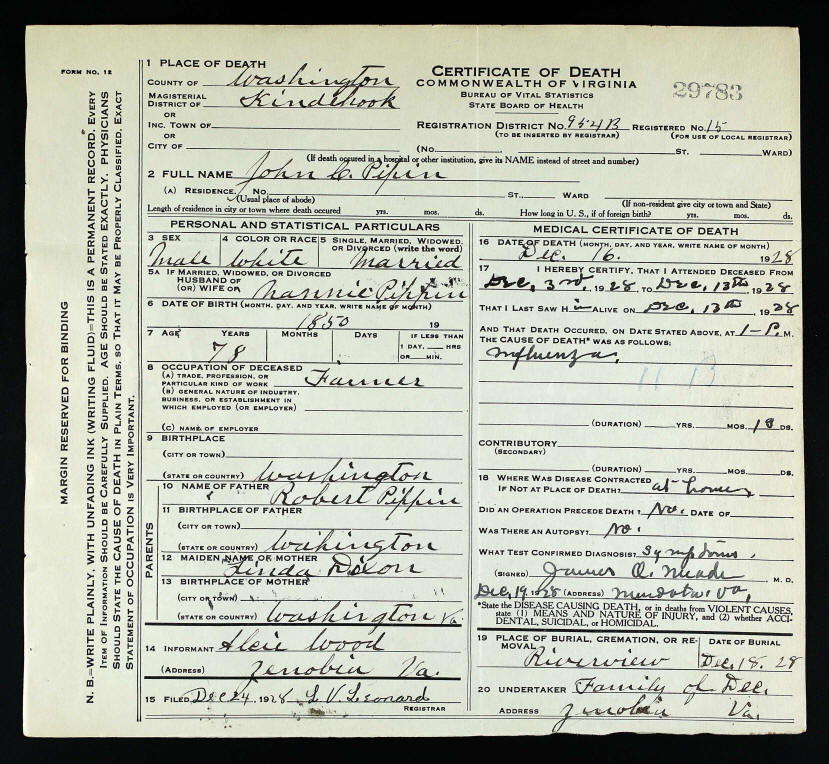 FORM NO. 12
MARGIN RESERVED FOR BINDING
N. B.—WRITE PLAINLY, WITH UNFADING INK (WRITING FLUID)—THIS IS A PERMANENT RECORD. EVERY
ITEM OF INFORMATION SHOULD BE CAREFULLY SUPPLIED. AGE SHOULD BE STATED EXACTLY. PHYSICIANS
SHOULD STATE THE CAUSE OF DEATH IN PLAIN TERMS, SO THAT IT MAY BE PROPERLY CLASSIFIED. EXACT
STATEMENT OF OCCUPATION IS VERY IMPORTANT.
1 PLACE OF DEATH
COUNTY OF Washington
MAGISTERIAL DISTRICT OF Kinderhook
OR
INC. TOWN OF
OR
CITY OF
CERTIFICATE OF DEATH
COMMONWEALTH OF VIRGINIA
BUREAU OF VITAL STATISTICS
STATE BOARD OF HEALTH
29783
REGISTRATION DISTRICT NO. 954B REGISTERED NO. 15
(TO BE INSERTED BY REGISTRAR) (FOR USE OF LOCAL REGISTRAR)
(No. ST. WARD)
(If death occured in a hospital or other institution, give its NAME instead of street and number)
2 FULL NAME John C. Pipin
(A) RESIDENCE. No. ST., WARD
(Usual place of abode) (If non-resident give city or town and State)
Length of residence in city or town where death occured yrs. mos. ds. How long in U. S., if of foreign birth? yrs. mos. ds.
PERSONAL AND STATISTICAL PARTICULARS
3 SEX 4 COLOR OR RACE 5 SINGLE, MARRIED, WIDOWED, OR DIVORCED (write the word)
Male White Married
5A IF MARRIED, WIDOWED, OR DIVORCED
HUSBAND OF
(OR) WIFE OF Nannie Pippin
6 DATE OF BIRTH (MONTH, DAY, AND YEAR, WRITE NAME OF MONTH)
1850 19
7 AGE YEARS MONTHS DAYS IF LESS THAN
1 DAY, HRS
OR MIN.
78
8 OCCUPATION OF DECEASED
(A) TRADE, PROFESSION, OR
PARTICULAR KIND OF WORK Farmer
(B) GENERAL NATURE OF INDUSTRY,
BUSINESS, OR ESTABLISHMENT IN
WHICH EMPLOYED (OR EMPLOYER)
(C) NAME OF EMPLOYER
9 BIRTHPLACE
(CITY OR TOWN)
(STATE OR COUNTRY) Washington
PARENTS
10 NAME OF FATHER Robert Pippin
11 BIRTHPLACE OF FATHER
(CITY OR TOWN)
(STATE OR COUNTRY) Washington
12 MAIDEN NAME OF MOTHER
Linda Dixon
13 BIRTHPLACE OF MOTHER
(CITY OR TOWN)
(STATE OR COUNTRY) Washington Va
14 INFORMANT Alcie Wood
(ADDRESS) Zenobia Va.
15 FILED Dec 24, 1928 L. V. Leonard
REGISTRAR
MEDICAL CERTIFICATE OF DEATH
16 DATE OF DEATH (MONTH, DAY, AND YEAR, WRITE NAME OF MONTH)
Dec. 16. 1928
17 I HEREBY CERTIFY, THAT I ATTENDED DECEASED FROM
Dec. 3rd, 1928 TO Dec, 13th, 1928
THAT I LAST SAW Him ALIVE ON Dec, 13th, 1928
AND THAT DEATH OCCURED, ON DATE STATED ABOVE, AT 1-P. M.
THE CAUSE OF DEATH* WAS AS FOLLOWS:
Influenza.
11 B
(DURATION) YRS. MOS. 18 DS.
CONTRIBUTORY
(SECONDARY)
(DURATION) YRS. MOS. DS.
18 WHERE WAS DISEASE CONTRACTED
IF NOT AT PLACE OF DEATH? at home
DID AN OPERATION PRECEDE DEATH? No. DATE OF
WAS THERE AN AUTOPSY? No.
WHAT TEST CONFIRMED DIAGNOSIS? Symptoms.
(SIGNED) James Q. Meade M. D.
Dec, 19, 1928 (ADDRESS) Mendota Va,
*State the DISEASE CAUSING DEATH, or in deaths from VIOLENT CAUSES,
state (1) MEANS AND NATURE OF INJURY, and (2) whether ACCI-
DENTAL, SUICIDAL, or HOMICIDAL.
19 PLACE OF BURIAL, CREMATION, OR RE-
MOVAL Riverview
DATE OF BURIAL
Dec. 18. 28
20 UNDERTAKER Family of Dec.
ADDRESS Zenobia Va.